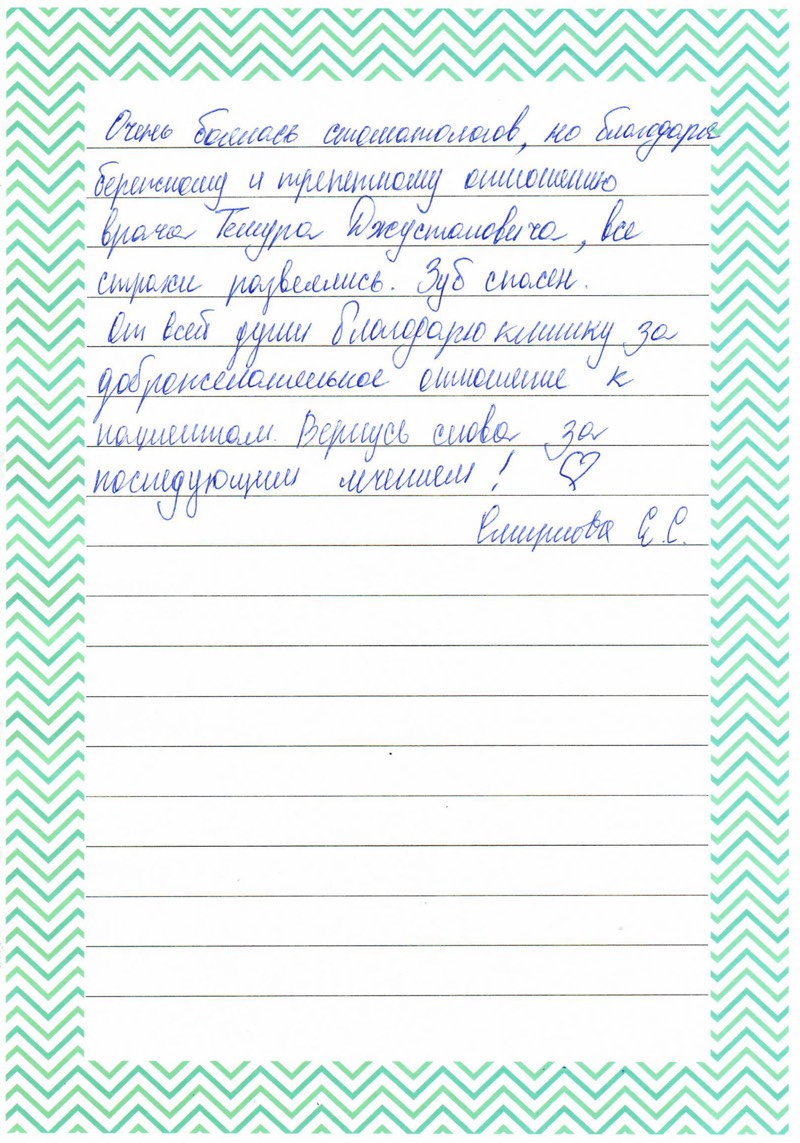 Очень боялась стоматологов, но благодаря
бережному и трепетному отношению
врача Темура Джустановича, все
страхи развеялись. Зуб спасен.
От всей души благодарю клинику за
доброжелательное отношение к
пациентам. Вернусь снова за
последующим лечением! ♡
Смирнова Е.С.